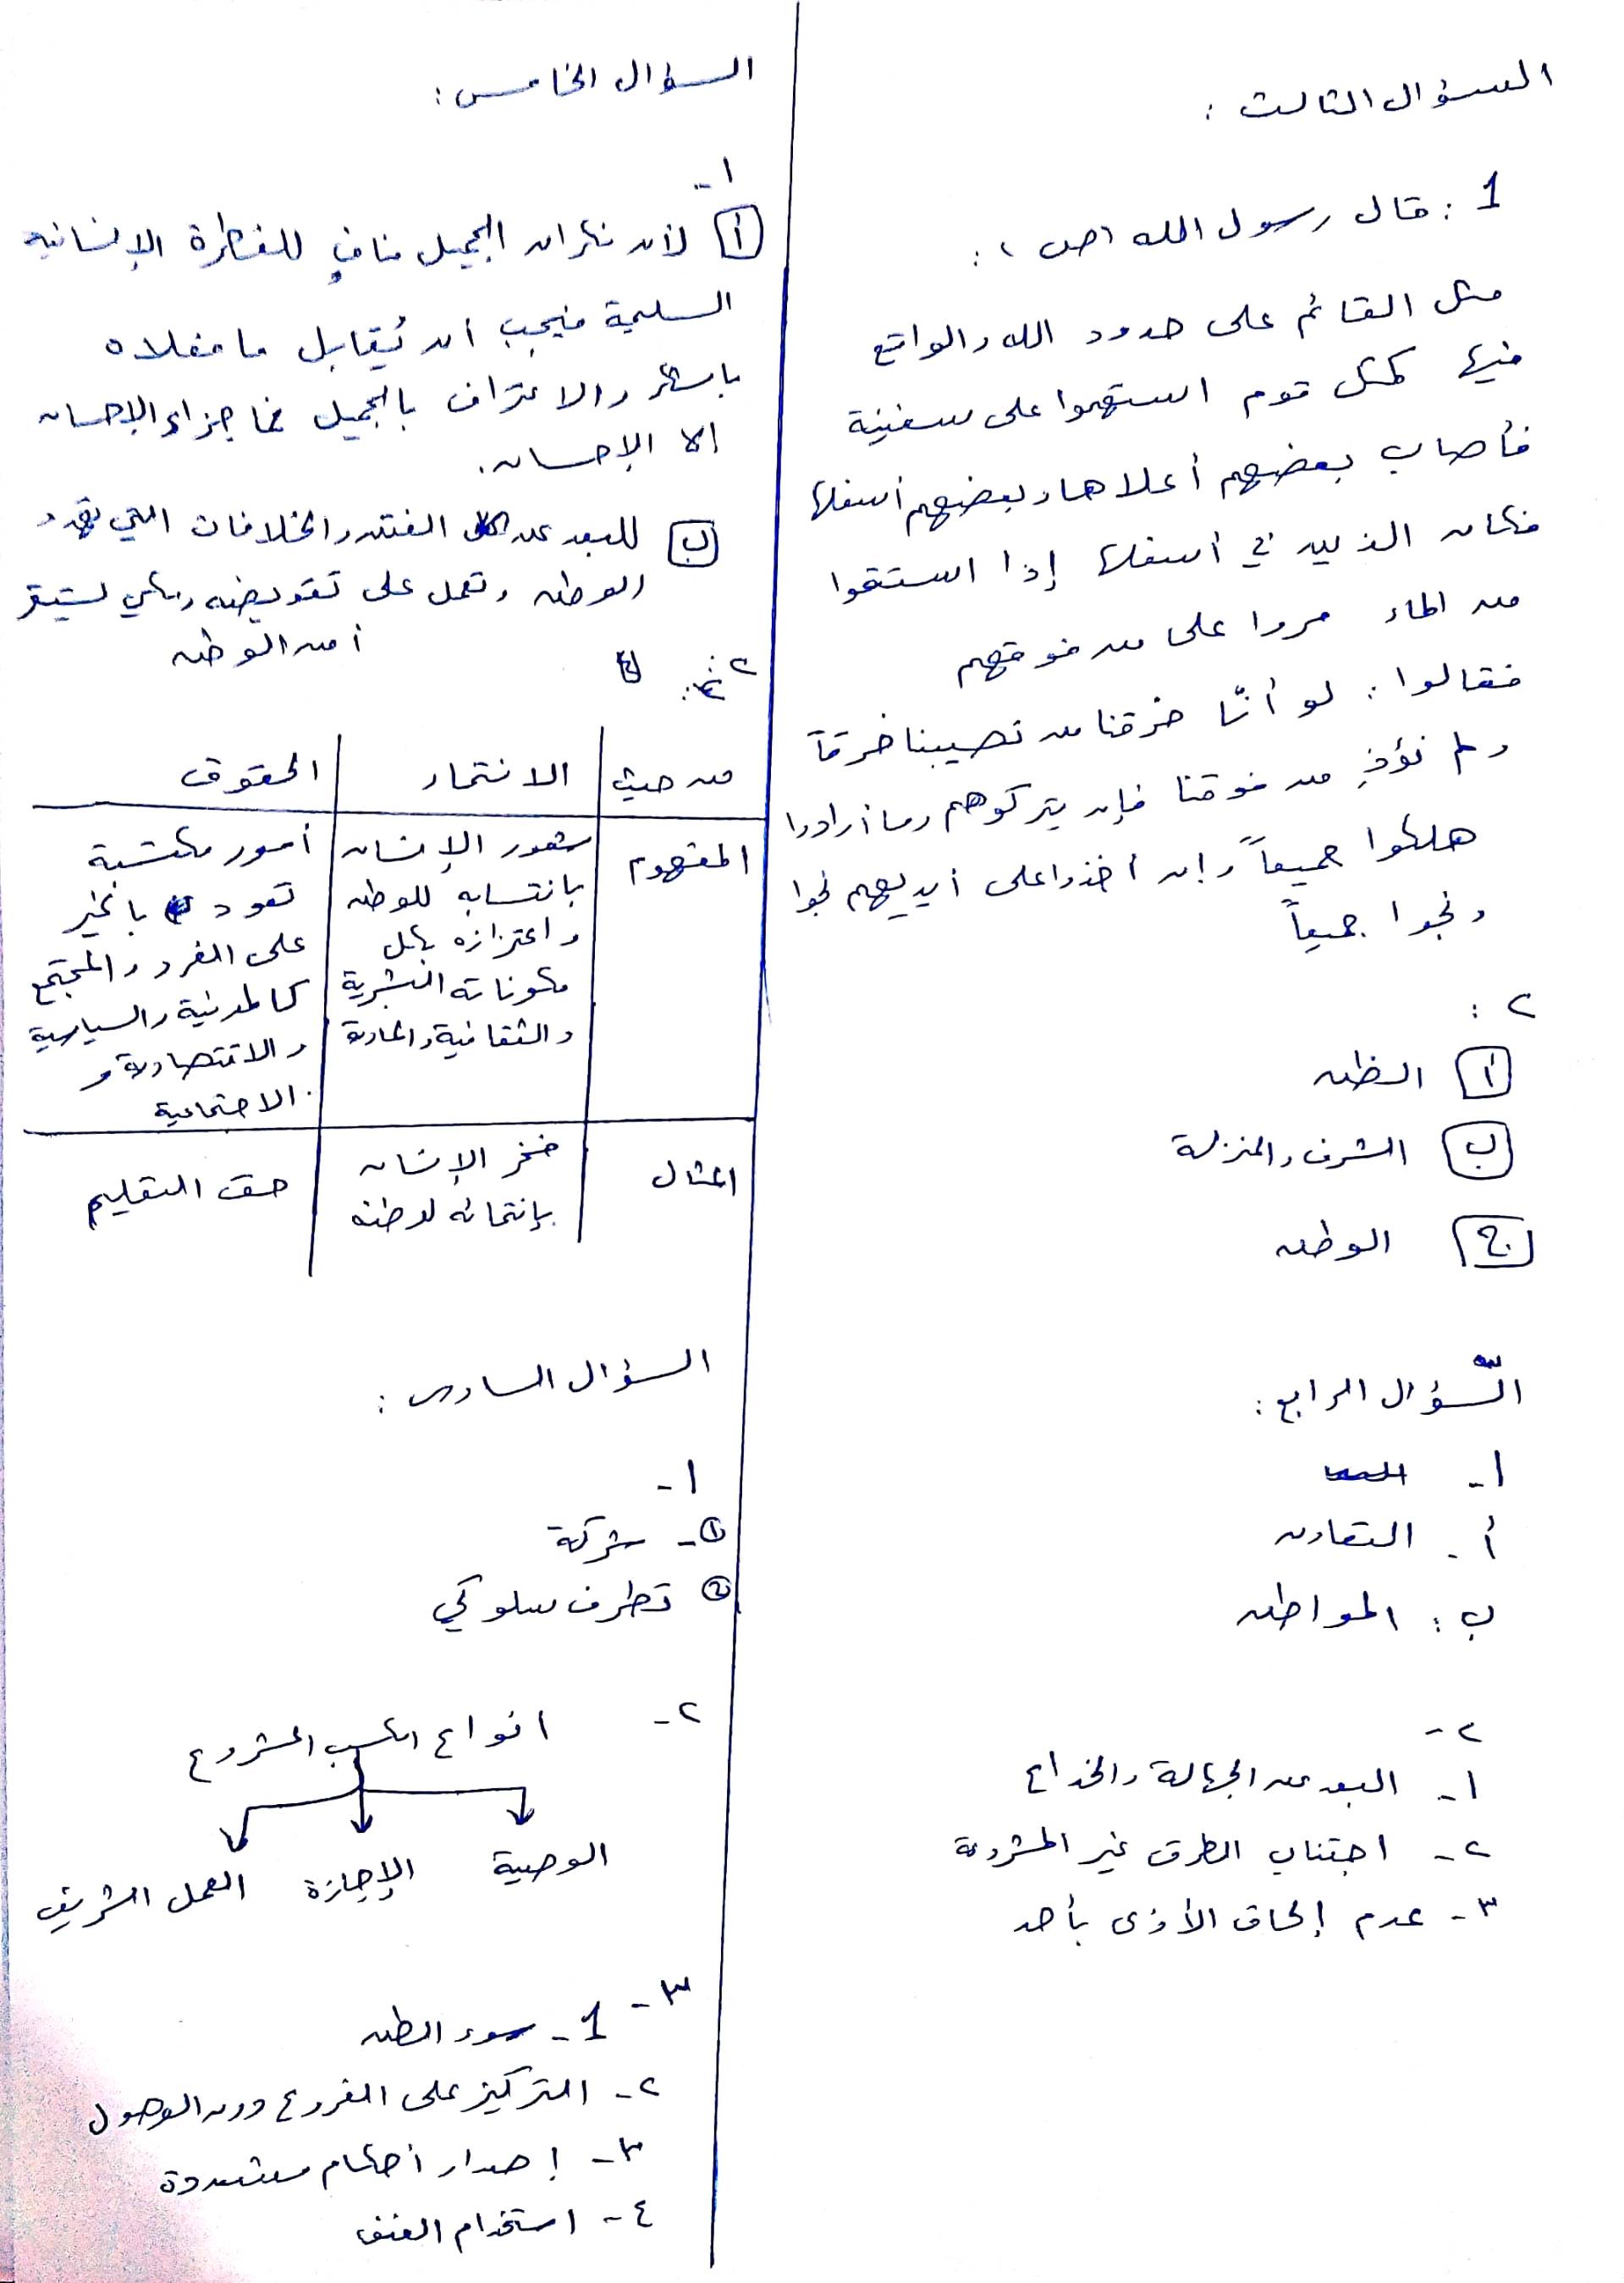 السؤال الثالث :
1 : قال رسول الله (ص) :
مثل القائم على حدود الله والواقع
فيها كمثل قوم استهموا على سفينة
فأصاب بعضهم أعلاها وبعضهم أسفلها
فكان الذين في أسفلها إذا استقوا
من الماء مروا على من فوقهم
فقالوا : لو أنّا خرقنا من نصيبنا خرقاً
ولم نؤذِ من فوقنا فإن يتركوهم وما أرادوا
هلكوا جميعاً وإن أخذوا على أيديهم نجوا
ونجوا جميعاً
٢ :
أ الظن
ب الشرف والمنزلة
ج الوطن
السّؤال الرابع :
١-
أ- التعاون
ب : المواطن
٢-
١- البعد عن الجهالة والخداع
٢- اجتناب الطرق غير المشروعة
٣- عدم إلحاق الأذى بأحد
السؤال الخامس :
١-
أ لأن نكران الجميل منافٍ للفطرة الإنسانية
السليمة فيجب أن يُقابل ما فعلاه
بالشكر والاعتراف بالجميل فما جزاء الإحسان
إلا الإحسان.
ب للبعد عن الفتن والخلافات التي تهدد
الوطن وتعمل على تقويضه ولكي يستقر
أمن الوطن
٢
من حيث الانتماء الحقوق
المفهوم شعور الإنسان أمور مكتسبة
بانتسابه للوطن تعود بالخير
واعتزازه بكل على الفرد والمجتمع
مكوناته البشرية كالمدنية والسياسية
والثقافية والمادية والاقتصادية و
الاجتماعية.
المثال فخر الإنسان حق التعليم
بإنتمائه لوطنه
السؤال السادس :
١-
①- شركة
② تطرف سلوكي
٢- انواع الكسب المشروع
الوصية الإجازة العمل الشريف
٣- 1- سوء الظن
٢- التركيز على الفروع دون الوصول
٣- إصدار أحكام متشددة
٤- استخدام العنف